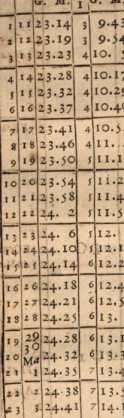 G. M. I G. M.
1 11 23.14 3 9.43
2 12 23.19 3 9.54
3 13 23.23 4 10.
4 14 23.28 4 10.17
5 15 23.32 4 10.2
6 16 23.37 4 10.4
7 17 23.41 4 10.5
8 18 23.46 4 11.
9 19 23.50 5 11.1
10 20 23.54 5 11.2
11 21 23.58 5 11.4
12 22 24. 2 5 11.5
13 23 24. 6 5 12.
14 24 24.10 5 12.1
15 25 24.14 6 12.2
16 26 24.18 6 12.4
17 27 24.21 6 12.5
18 28 24.25 6 13.
19 29 24.28 6 13.1
20 30 24.32 6 13.3
Ma
21 1 24.35 7 13.4
22 2 24.38 7 13.5
23 3 24.41 7 14.